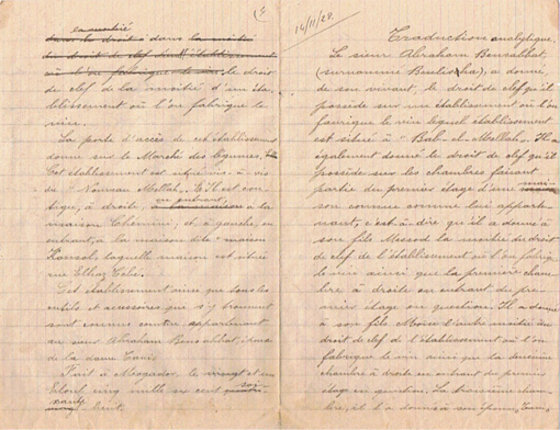 14/11/28.
Traduction analytique.
Le sieur Abraham Bensabbat,
(surnommé), a donné,
de son vivant, le droit de clef qu'il
possède sur un établissement où l'on
fabrique le vin lequel établissement
est situé à "Bab-el-Mellah". Il a
également donné le droit de clef qu'il
possède sur les chambres faisant
partie du premier étage d'une mai-
son connue comme lui apparte-
nant, c'est-à-dire qu'il a donné à
son fils Messod la moitié du droit
de clef de l'établissement où l'on fabrique
le vin ainsi que la première cham-
bre à droite en entrant du pre-
mier étage en question. Il a donné
à son fils Moïse l'autre moitié du
droit de clef de l'établissement où l'on
fabrique le vin ainsi que la deuxième
chambre à droite en entrant du premier
étage en question. La troisième cham-
bre, il l'a donnée à son épouse,
la moitié
dans le droit dans la moitié
du droit de clef de l'établissement
où l'on fabrique le droit
de clef de la moitié d'un éta-
blissement où l'on fabrique le
vin.
La porte d'accès de cet établissement
donne sur le Marché des légumes.
Cet établissement est situé vis-à-vis
du "Nouveau Mellah". Il est con-
en entrant,
tigu, à droite, à la maison à la
maison et, à gauche, en
entrant, à la maison dite "maison
laquelle maison est située
rue
Cet établissement ainsi que tous les
outils et accessoires qui s'y trouvent
sont connus comme appartenant
au sieur Abraham Bensabbat, époux
de la dame
Fait à Mogador, le vingt et un
Eloul cinq mille six cent soi-
xante
huit.